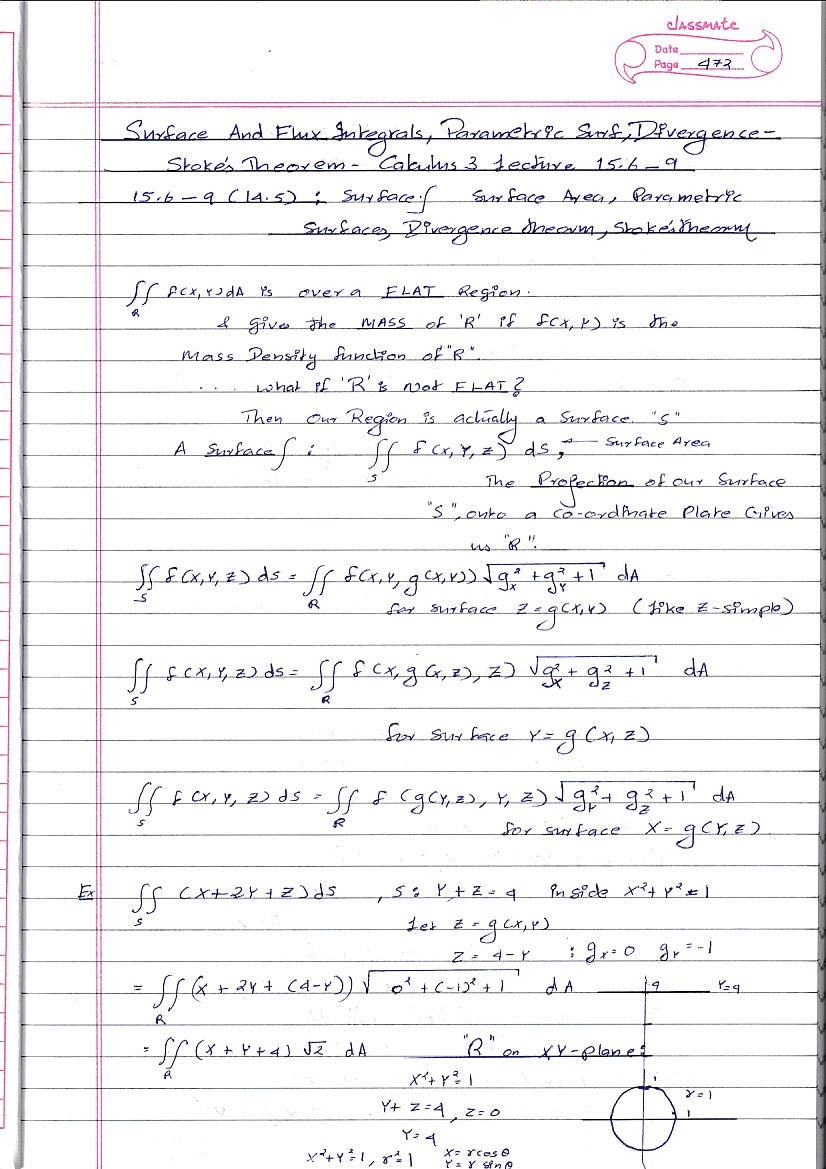 classmate
Date
Page 473
Surface And Flux Integrals, Parametric Surf., Divergence-
Stoke's Theorem - Calculus 3 Lecture 15.6-9
15.6-9 (14.5) : Surface ∫ Surface Area, Parametric
Surfaces, Divergence theorm, Stoke's Theorm
∬_R f(x,y)dA is over a FLAT Region.
& gives the MASS of 'R' if f(x,y) is the
Mass Density function of "R".
.... what if 'R' is not FLAT?
Then our Region is actually a surface. "S"
A Surface ∫ : ∬_S f(x,y,z) ds, ← Surface Area
The Projection of our Surface
"S", onto a co-ordinate Plane Gives
us "R".
∬_S f(x,y,z) ds = ∬_R f(x,y,g(x,y)) √(g_x² + g_y² + 1) dA
for surface z=g(x,y) (like z-simple)
∬_S f(x,y,z) ds = ∬_R f(x,g(x,z),z) √(g_x² + g_z² + 1) dA
for surface Y=g(x,z)
∬_S f(x,y,z) ds = ∬_R f(g(y,z),y,z) √(g_y² + g_z² + 1) dA
for surface X=g(Y,z)
Ex ∬_S (x+2y+z)ds , S: Y+z=4 inside x²+y²=1
Let z=g(x,y)
z=4-y : g_x=0 g_y=-1
= ∬_R (x+2y+(4-y)) √(0²+(-1)²+1) dA
4 Y=4
= ∬_R (x+y+4) √2 dA "R" on XY-plane:
x²+y²=1
1 r=1
y+z=4, z=0
1
Y=4
x²+y²=1, r²=1 x=rcosθ
y=r sinθ